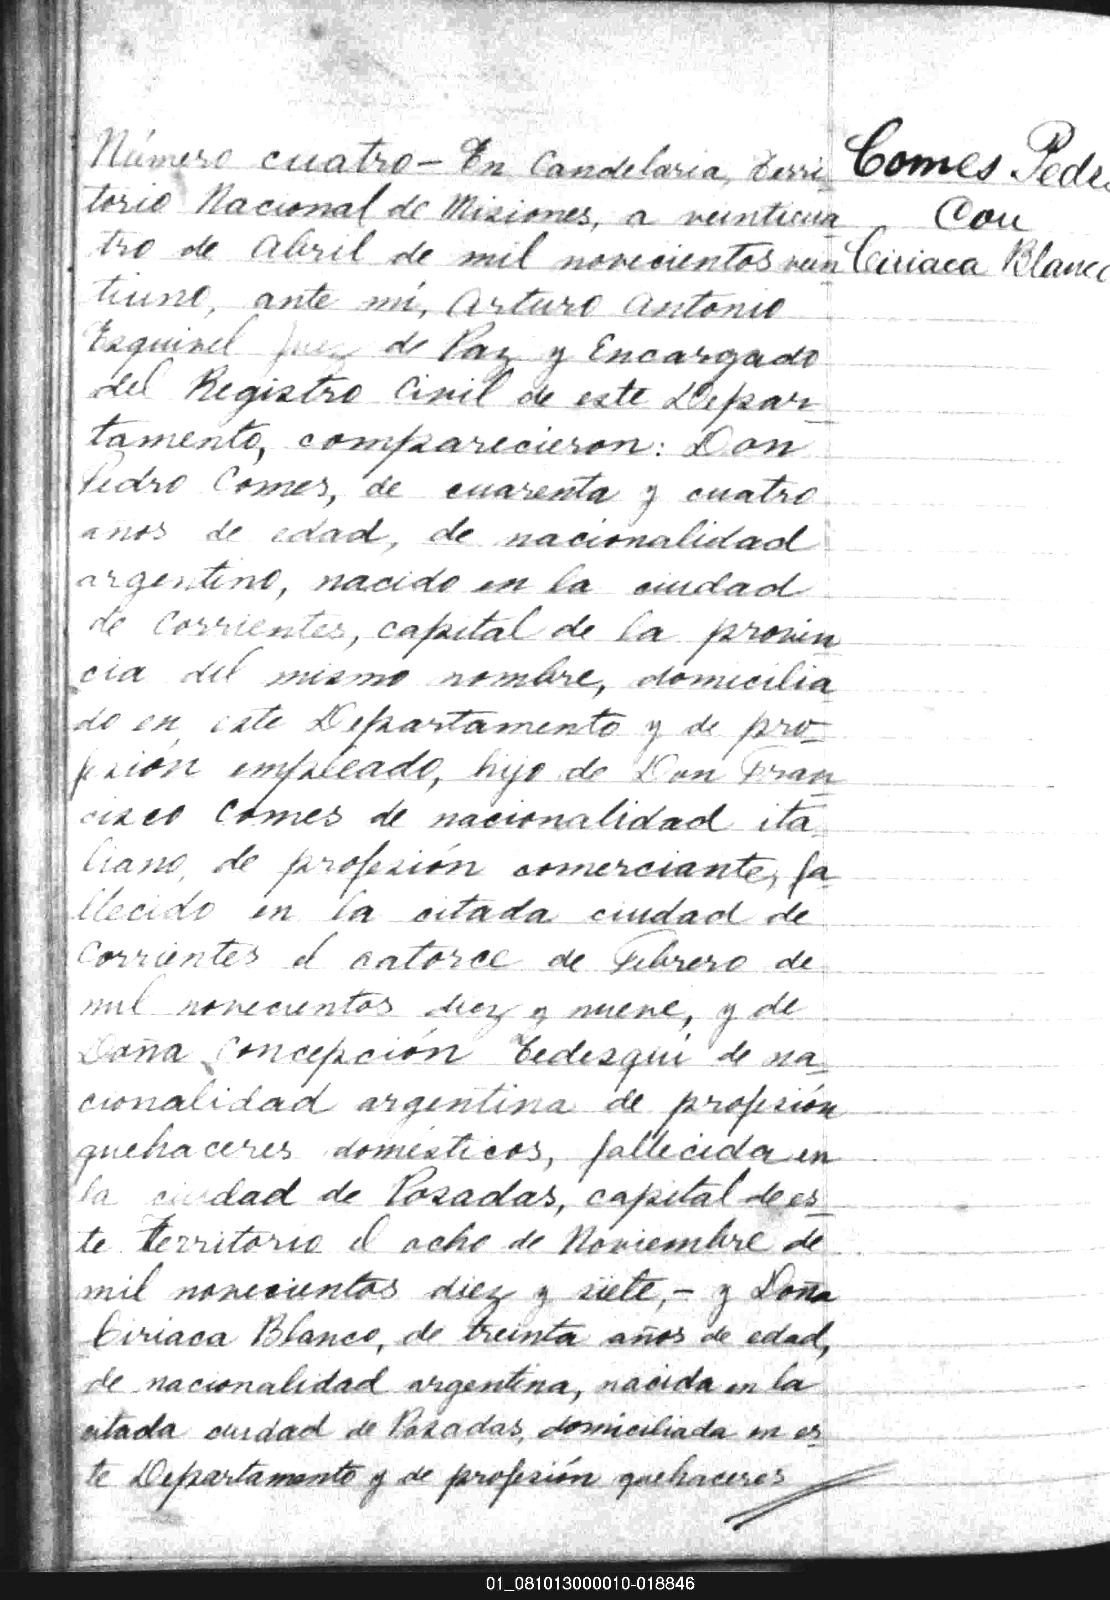 Número cuatro – En Candelaria, Terri-
torio Nacional de Misiones, a veinticua
tro de Abril de mil novecientos vein
tiuno, ante mí, Arturo Antonio
Esquivel Juez de Paz y Encargado
del Registro Civil de este Depar-
tamento, comparecieron: Don
Pedro Comes, de cuarenta y cuatro
años de edad, de nacionalidad
argentino, nacido en la ciudad
de Corrientes, capital de la provin
cia del mismo nombre, domicilia
do en este Departamento y de pro-
fesión empleado, hijo de Don Fran
cisco Comes de nacionalidad ita-
liano, de profesión comerciante, fa-
llecido en la citada ciudad de
Corrientes el catorce de Febrero de
mil novecientos diez y nueve, y de
Doña Concepción Tedesqui de na-
cionalidad argentina de profesión
quehaceres domésticos, fallecida en
la ciudad de Posadas, capital de es-
te territorio el ocho de Noviembre de
mil novecientos diez y siete, – y Doña
Ciriaca Blanco, de treinta años de edad,
de nacionalidad argentina, nacida en la
citada ciudad de Posadas, domiciliada en es-
te Departamento y de profesión quehaceres
Comes Pedro
Con
Ciriaca Blanco
01_081013000010-018846